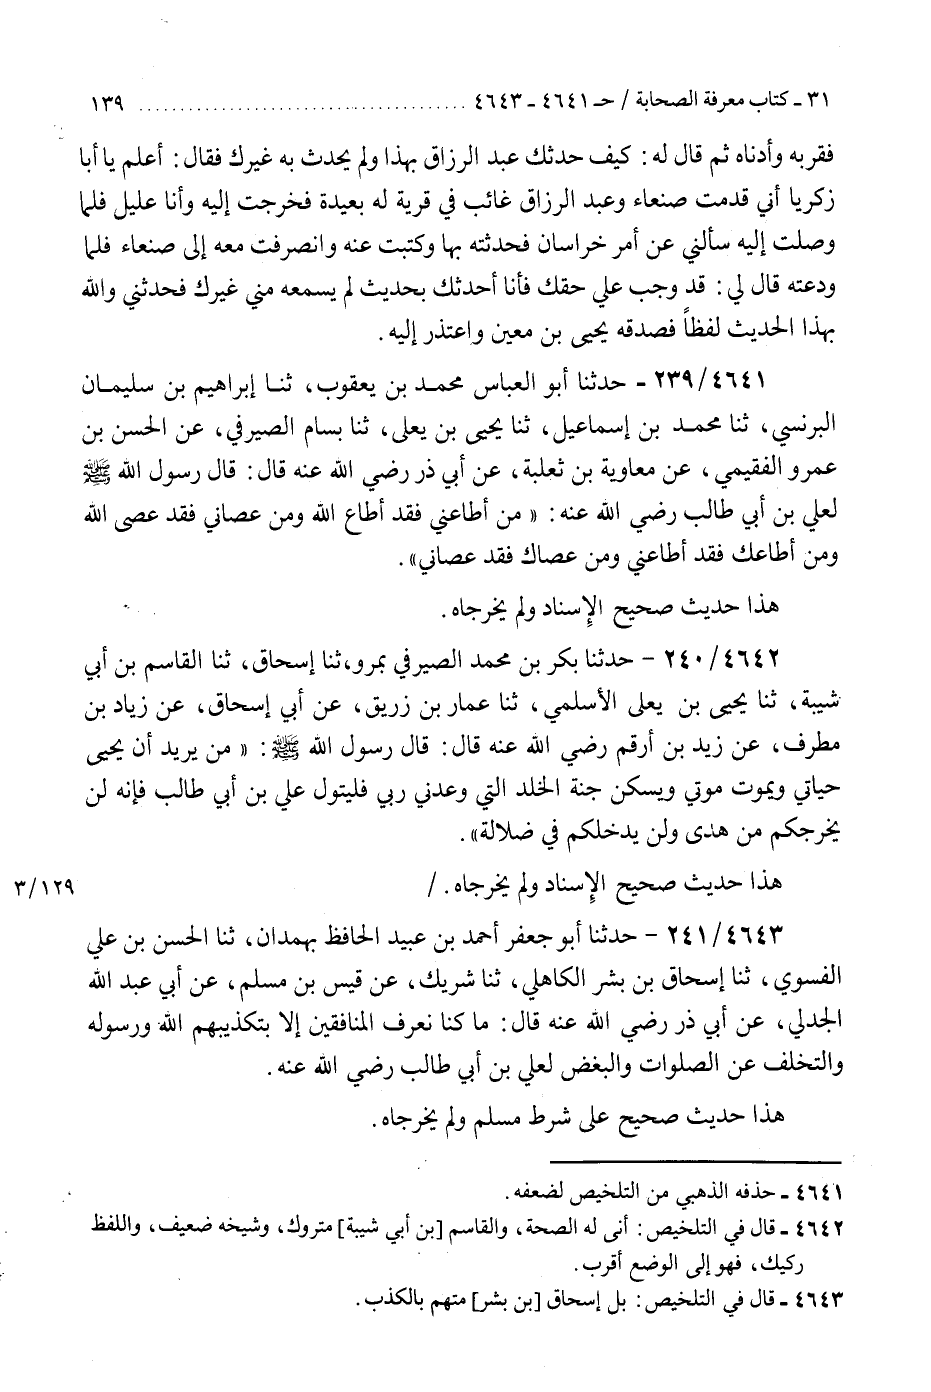 ٣١ - كتاب معرفة الصحابة / حـ ٤٦٤١ - ٤٦٤٣ ..................................... ١٣٩
فقربه وأدناه ثم قال له: كيف حدثك عبد الرزاق بهذا ولم يحدث به غيرك فقال: أعلم يا أبا
زكريا أني قدمت صنعاء وعبد الرزاق غائب في قرية له بعيدة فخرجت إليه وأنا عليل فلما
وصلت إليه سألني عن أمر خراسان فحدثته بها وكتبت عنه وانصرفت معه إلى صنعاء فلما
ودعته قال لي: قد وجب علي حقك فأنا أحدثك بحديث لم يسمعه مني غيرك فحدثني والله
بهذا الحديث لفظاً فصدقه يحيى بن معين واعتذر إليه.
٢٣٩/٤٦٤١ - حدثنا أبو العباس محمد بن يعقوب، ثنا إبراهيم بن سليمان
البرنسي، ثنا محمد بن إسماعيل، ثنا يحيى بن يعلى، ثنا بسام الصيرفي، عن الحسن بن
عمرو الفقيمي، عن معاوية بن ثعلبة، عن أبي ذر رضي الله عنه قال: قال رسول الله ﷺ
لعلي بن أبي طالب رضي الله عنه: « من أطاعني فقد أطاع الله ومن عصاني فقد عصى الله
ومن أطاعك فقد أطاعني ومن عصاك فقد عصاني».
هذا حديث صحيح الإسناد ولم يخرجاه.
٢٤٠/٤٦٤٢ - حدثنا بكر بن محمد الصيرفي بمرو،ثنا إسحاق، ثنا القاسم بن أبي
شيبة، ثنا يحيى بن يعلى الأسلمي، ثنا عمار بن زريق، عن أبي إسحاق، عن زياد بن
مطرف، عن زيد بن أرقم رضي الله عنه قال: قال رسول الله ﷺ: « من يريد أن يحيى
حياتي ويموت موتي ويسكن جنة الخلد التي وعدني ربي فليتول علي بن أبي طالب فإنه لن
يخرجكم من هدى ولن يدخلكم في ضلالة».
هذا حديث صحيح الإسناد ولم يخرجاه. / ٣/١٢٩
٢٤١/٤٦٤٣ - حدثنا أبو جعفر أحمد بن عبيد الحافظ بهمدان، ثنا الحسن بن علي
الفسوي، ثنا إسحاق بن بشر الكاهلي، ثنا شريك، عن قيس بن مسلم، عن أبي عبد الله
الجدلي، عن أبي ذر رضي الله عنه قال: ما كنا نعرف المنافقين إلا بتكذيبهم الله ورسوله
والتخلف عن الصلوات والبغض لعلي بن أبي طالب رضي الله عنه.
هذا حديث صحيح على شرط مسلم ولم يخرجاه.
٤٦٤١ - حذفه الذهبي من التلخيص لضعفه.
٤٦٤٢ - قال في التلخيص: أنى له الصحة، والقاسم [بن أبي شيبة] متروك، وشيخه ضعيف، واللفظ
ركيك، فهو إلى الوضع أقرب.
٤٦٤٣ - قال في التلخيص: بل إسحاق [بن بشر] متهم بالكذب.